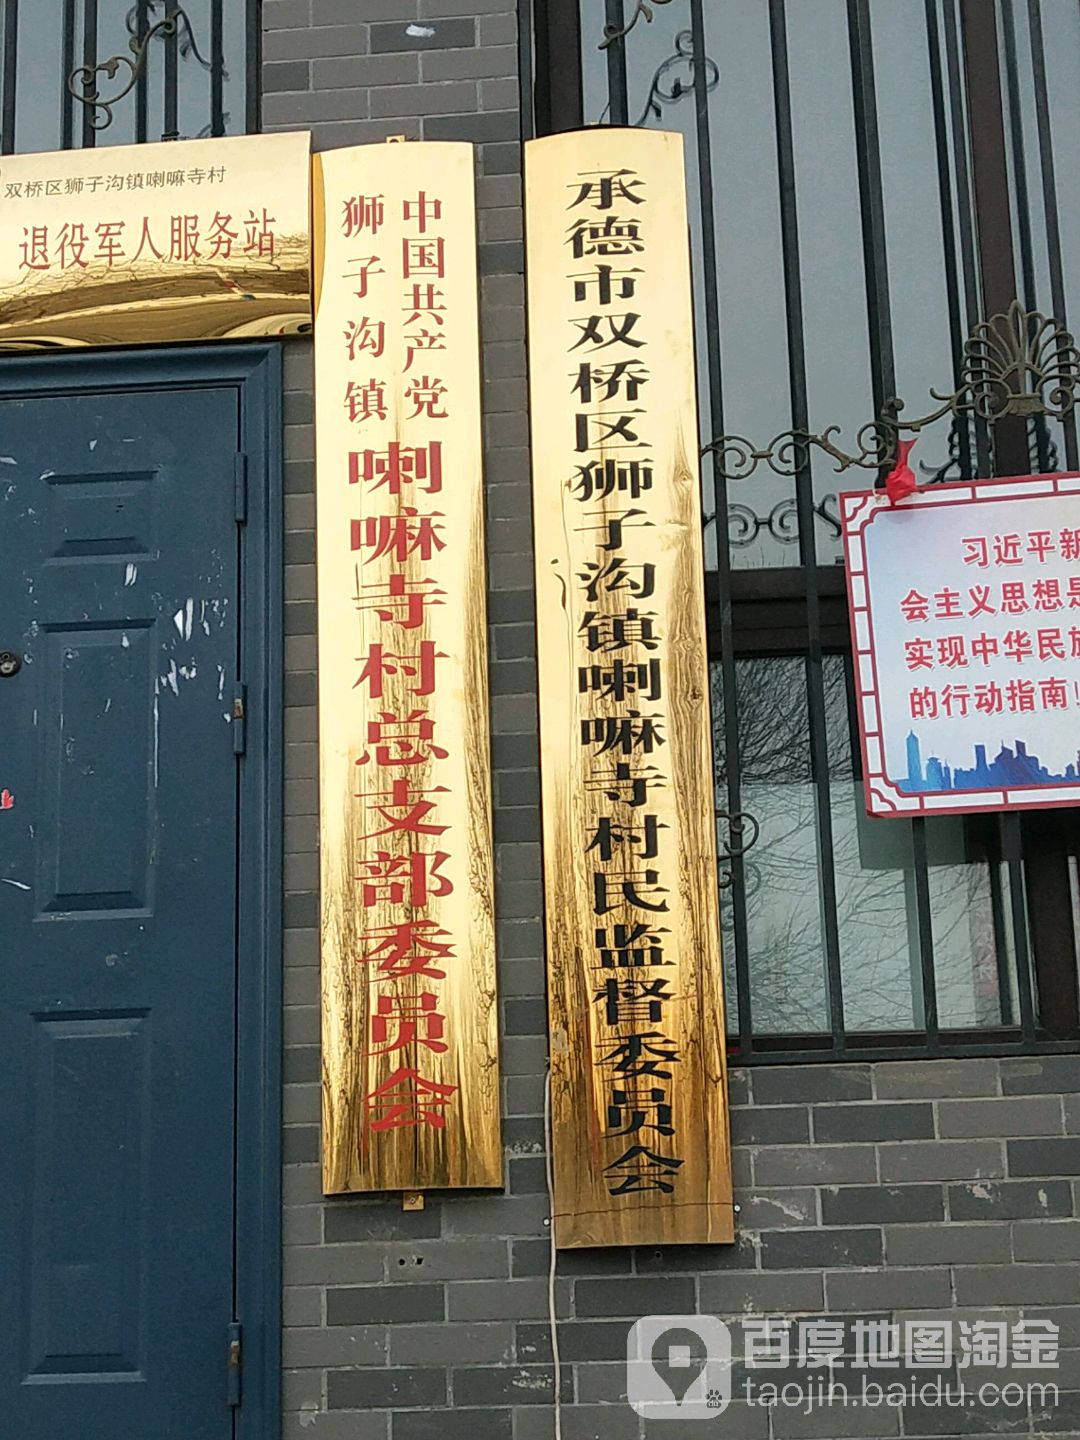 双桥区狮子沟镇喇嘛寺村
退役军人服务站
中国共产党
狮子沟镇
喇嘛寺村总支部委员会
承德市双桥区狮子沟镇喇嘛寺村民监督委员会
习近平新
会主义思想是
实现中华民族
的行动指南
百度地图淘金
taojin.baidu.com